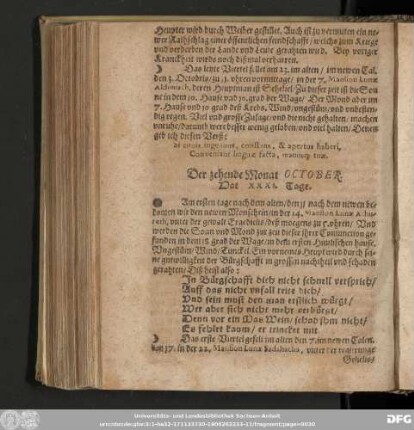 Heupter wird durch Weiber gestillet. Auch ist zu vermuten ein ne-
wer Rathschlag einer öffentlichen feindschafft / welche zum Kriege
und verderben der Lande und Leute gerahten wird. Bey voriger
Kranckheit wirds noch dißmal verharren.
Das letzte Viertel fellet am 23. im alten / im newen Cal.
den 3. Octobris / zu 3. uhren vormittage / in der 7. Mansion Lunæ
Aldimiach, deren Heuptman ist Scheliel. Zu dieser zeit ist die Son-
ne in dem 10. Hause und 10. grad der Wage / Der Mond aber im
7. Hause und 10 grad des Krebs. Wind / ungestüm / und unbesten-
dig regen. Viel und grosse Zusage / und die nicht gehalten / machen
unruhe / darumb werd dessen wenig geloben / und viel halten / Denen
geb ich diesen Verß:
constans, & apertus haberi,
Conveniant linguæ facta, manusq; tuæ.
Der zehende Monat OCTOBER
Hat XXXI. Tage.
Am ersten tage nach dem alten / den 11 nach dem newen be-
kommen wir den newen Monschein / in der 14. Mansion Lunæ
unter der gewalt Ergediels / deß morgens zu 7. uhren / Und
werden die Sonn und Mond zur zeit dieser ihrer Conjunction ge-
funden in dem 18 grad der Wage / in deß ersten Himlischen hause.
Ungestüm / Wind / Tunckel. Ein vornemes Heupt wird durch sei-
ne gutwilligkeit der Bürgschafft in grossen nachtheil und schaden
gerahten / Diß heist also:
In Bürgschafft dich nicht schnell versprich /
Auff das nicht unfall reite dich /
Und sein must den man eißlich würgt /
Wer aber sich nicht mehr verbürgt /
Denn vor ein Maß Wein / schad ihm nicht /
Es fehlet kaum / er trincket mit.
Das erste Viertel gefelt im alten den 7. im newen Calen.
den 17. in der 22. Mansion Lunæ Sadahacha, unter der regierunge
Geliels /